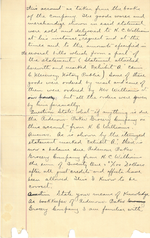 this account as taken from the books
of the Company. The goods wares and
merchandise shown in said statement
were sold and delivered to H. C. Williams
at his instance, request and at the
times and to the amounts specified in
several bills which form a part of
the statement. (Statement attached
hereto and marked Exhibit H.
& Notary Public.) Some of these
goods were ordered by mail and some of
them were ordered by Mr. Williams'
but all the orders were given
by him personally.
Question State what if anything is due
the Peterson Bates Grocery Company on
this account from H. C. Williams
Answer As is shown by the itemized
statement marked Exhibit H. there
was a balance due Peterson Bates
Grocery Company from H. C. Williams
the sum of Seventy five & Dollars
after all just credits and offsets have
been allowed. This I know to be
correct.
Question State your means of knowledge
As bookkeeper of Peterson Bates
Grocery Company I am familiar with